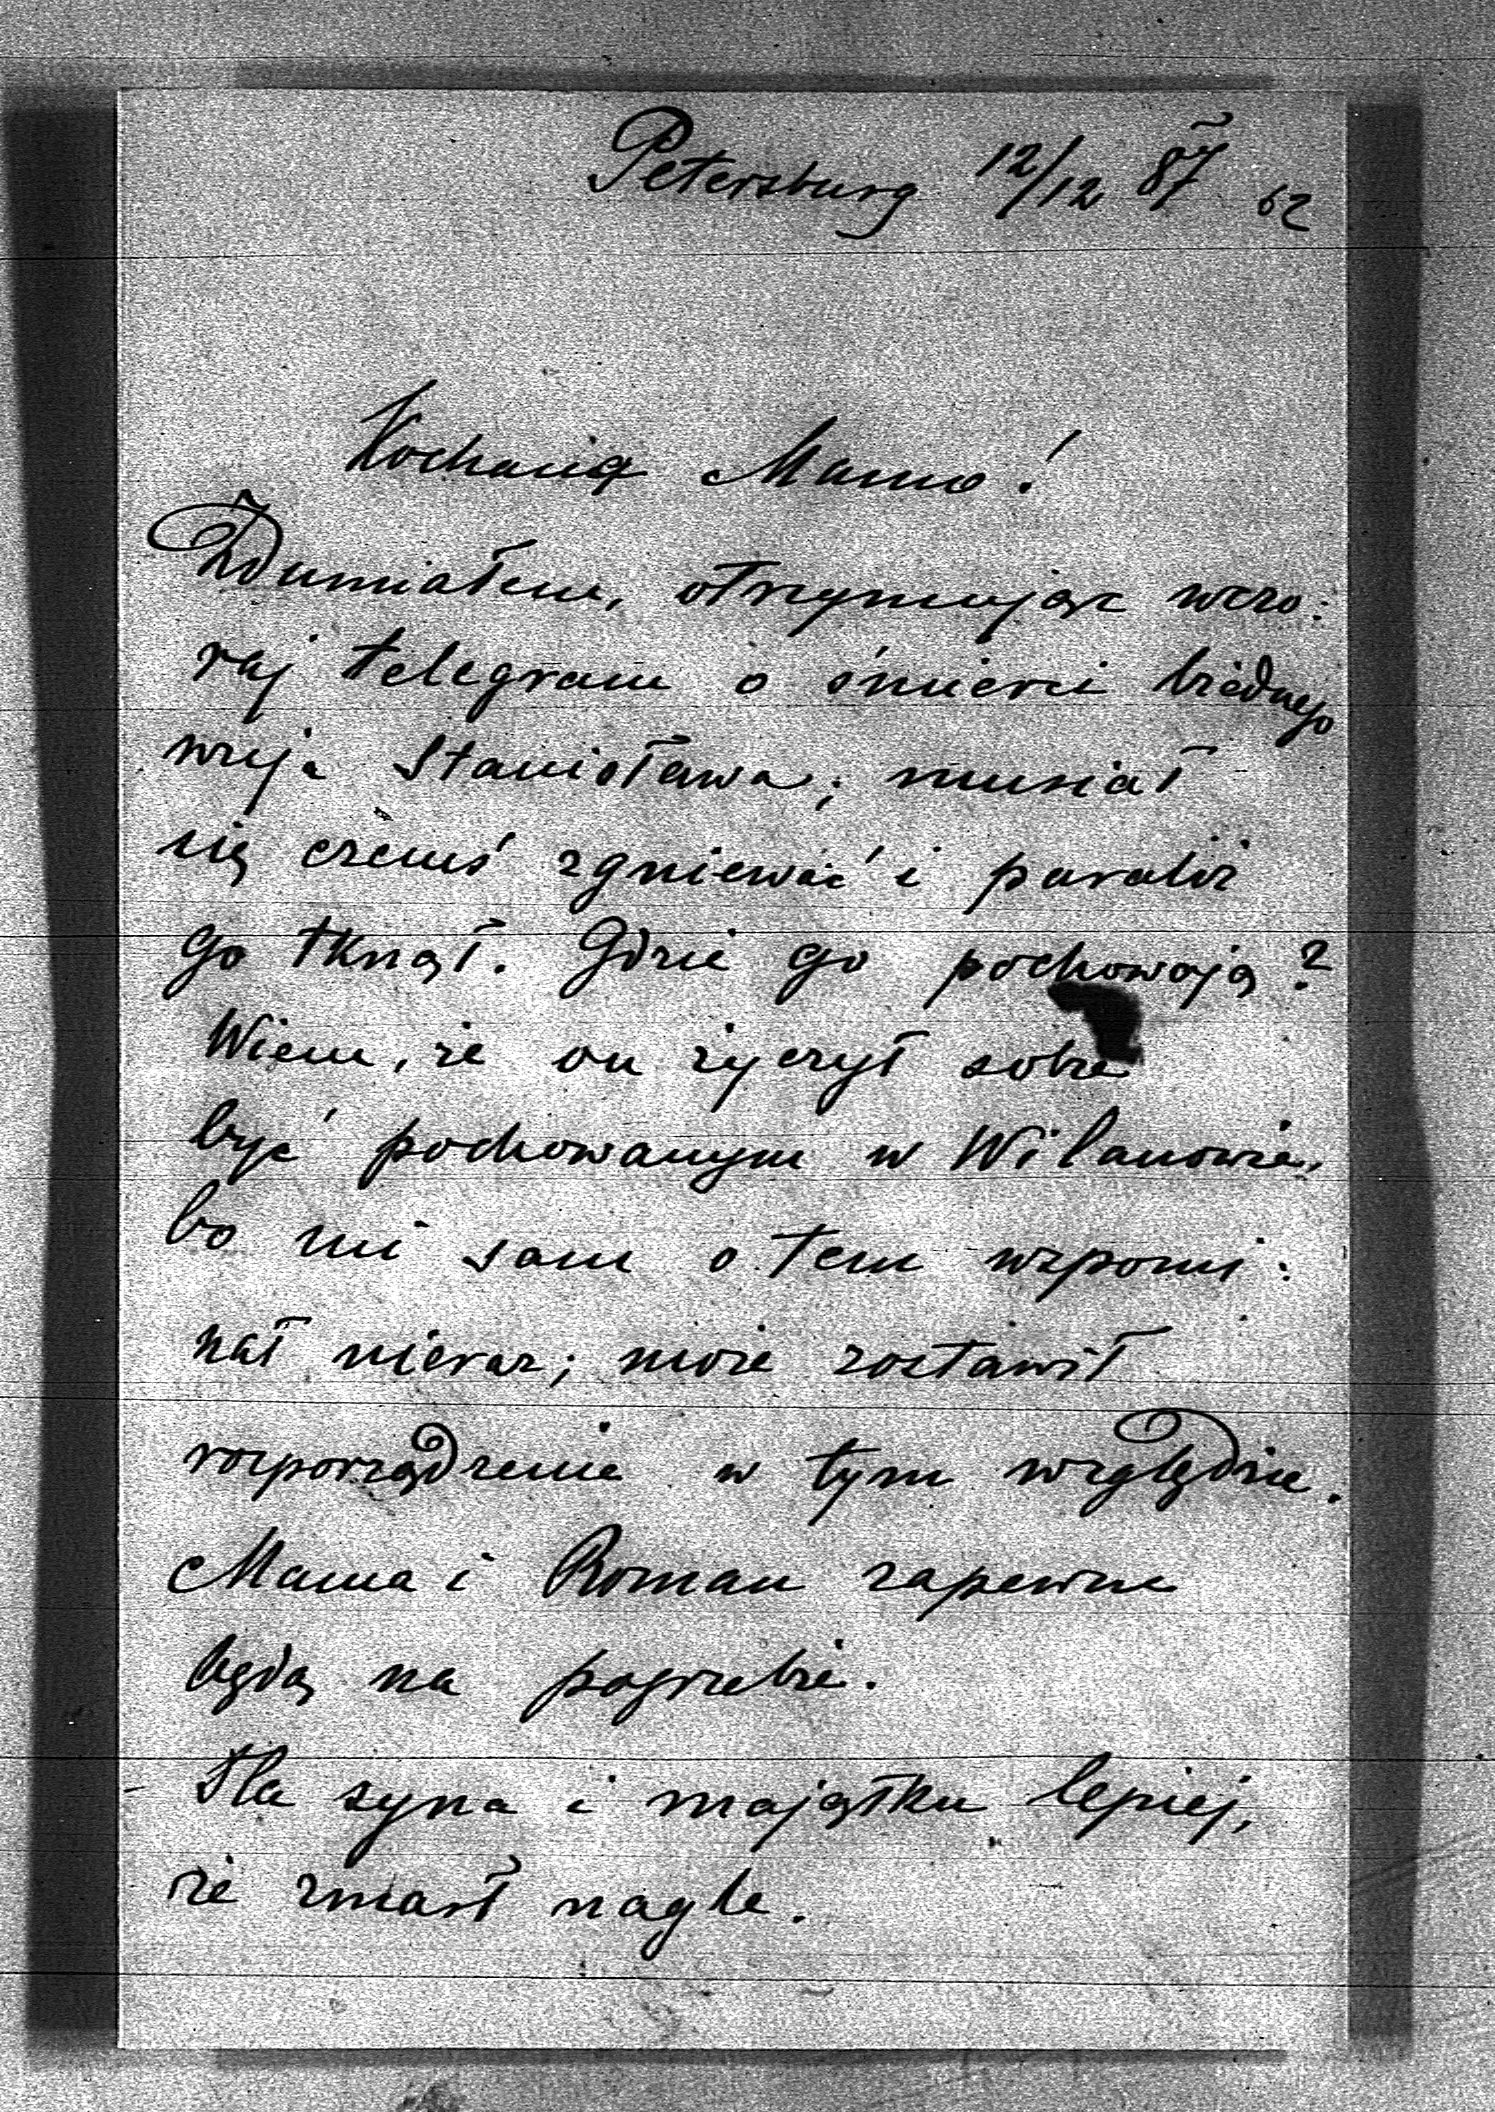 Petersburg 12/12 87 62
Kochana Mamo!
Zdumiałem, otrzymując wczo:
raj telegram o śmierci biednego
wuja Stanisława; musiał
się czemś zgniewać i paraliż
go tknął. Gdzie go pochowają?
Wiem, że on życzył sobie
być pochowanym w Wilanowie,
bo mi sam o tem wspomi:
nał nieraz; może zostawił
rozporządzenie w tym względzie.
Mama i Roman zapewne
będą na pogrzebie.
Dla syna i majątku lepiej,
że zmarł nagle.